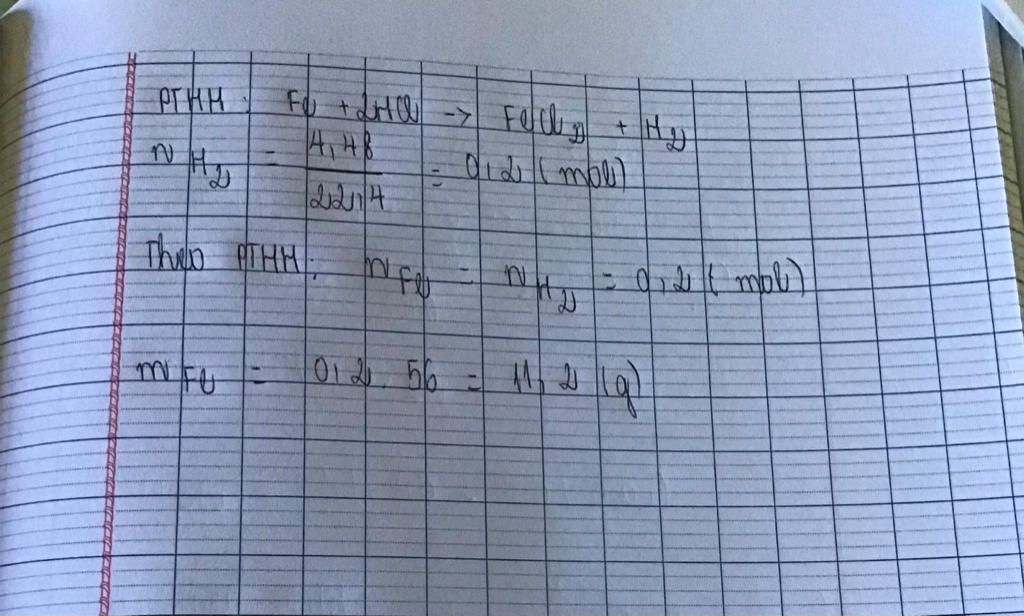 PTHH: Fe + 2HCl -> FeCl2 + H2
nH2 = 4,48/22,4 = 0,2 (mol)
Theo PTHH: nFe = nH2 = 0,2 (mol)
mFe = 0,2. 56 = 11,2 (g)